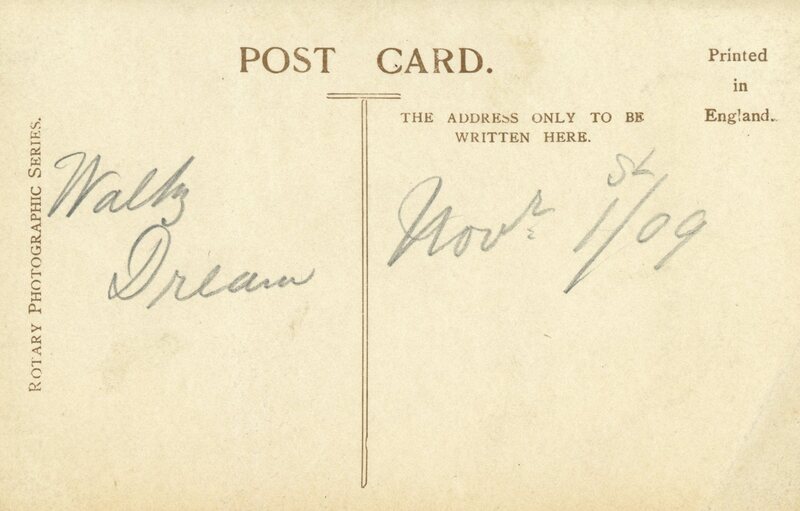 POST CARD.
Printed
in
England.
THE ADDRESS ONLY TO BE
WRITTEN HERE.
ROTARY PHOTOGRAPHIC SERIES.
Waltz
Dream
Novr 1st/09